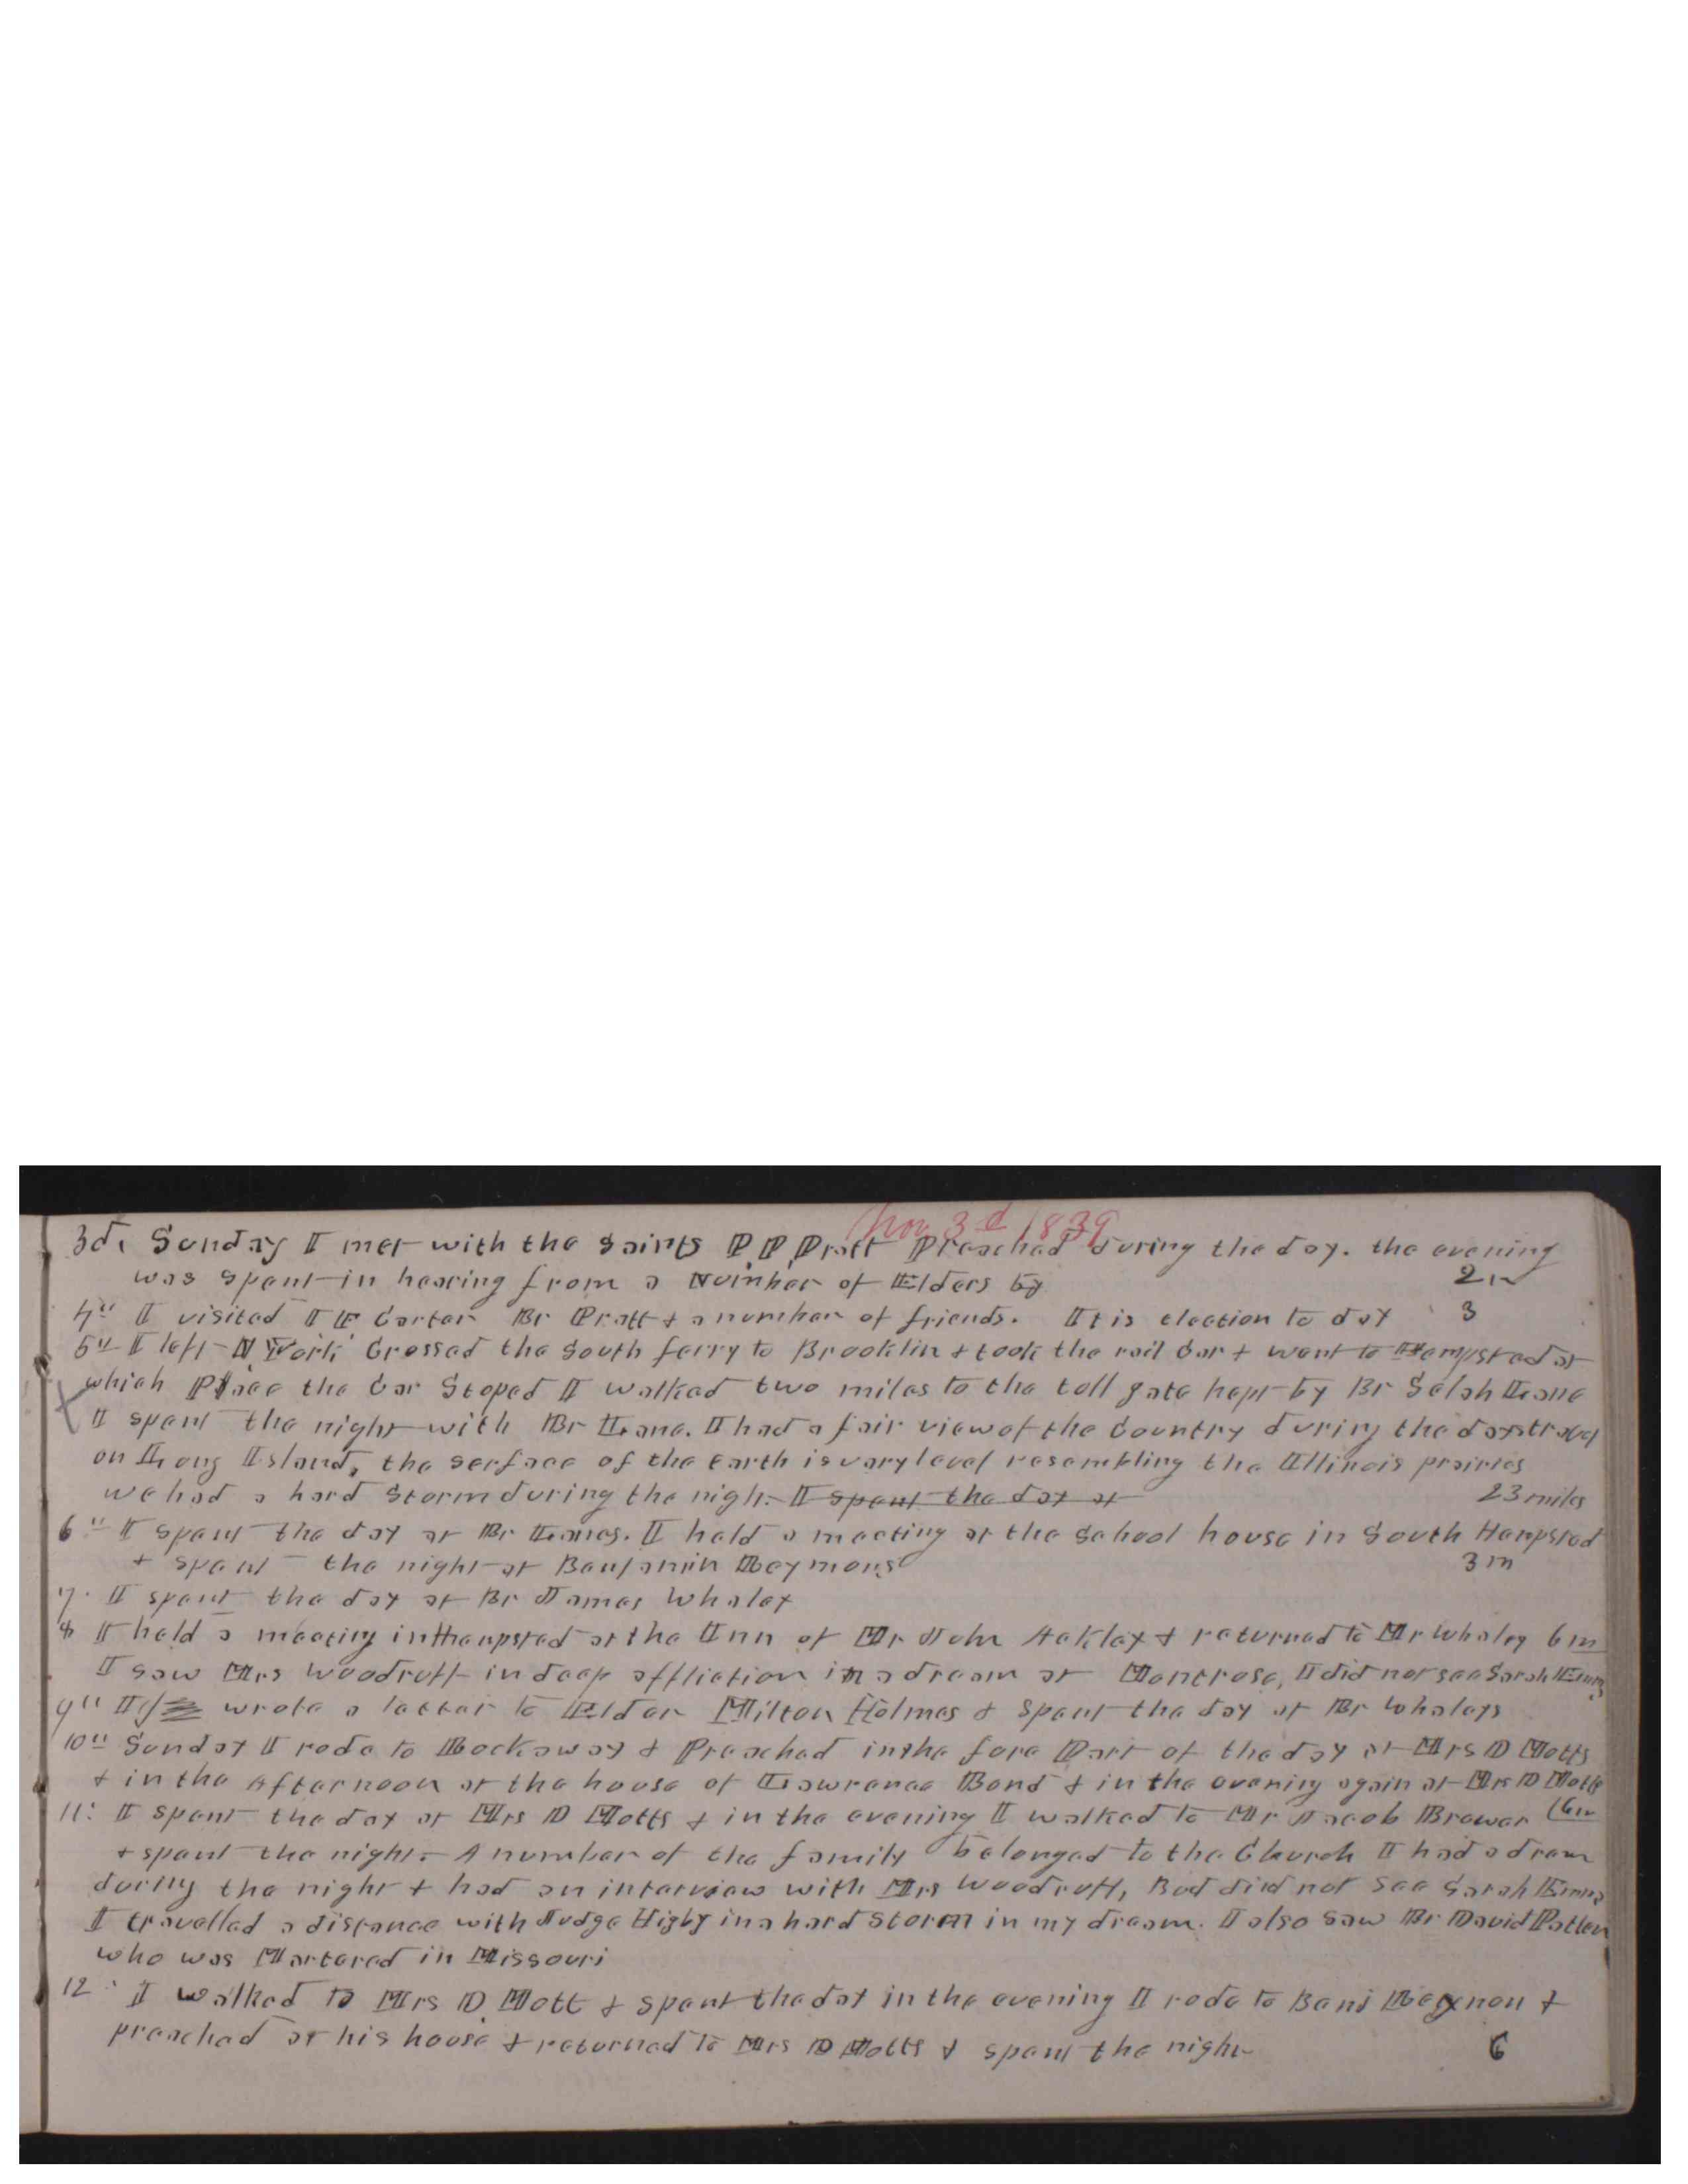 Nov 3d 1839
3d, Sunday I met with the Saints P P Pratt Preached during the day. the evening
was spent in hearing from a Number of Elders by 2 m
4" I visited I F Carter Br Pratt & a number of friends. It is election to day 3
5" I left N York Crossed the South ferry to Brooklin & took the rail Car & went to Hempsted at
which Place the Car Stoped I walked two miles to the toll gate kept by Br Selah Lane
I spent the night with Br Lane. I had a fair view of the Country during the days travel
on Long Island, the serface of the Earth is very level resembling the Illinois prairies
we had a hard Storm during the night. I spent the day at 23 miles
6" I spent the day at Br Lanes. I held a meeting at the School house in South Hempsted
& spent the night at Benjamin 3 m
7. I spent the day at Br James Whaley
8 I held a meeting in Hempsted at the Inn of Mr John & returned to Mr Whaley 6 m
I saw Mrs Woodruff in deep affliction in a dream at Montrose, I did not see Sarah Emma
9" I wrote a letter to Elder Milton Holmes & spent the day at Br Whaleys
10" Sunday I rode to Rockaway & Preached in the fore Part of the day at Mrs D Motts
& in the Afternoon at the house of Lawrence Bond & in the evening again at Mrs D Motts
11" I spent the day at Mrs D Motts & in the evening I walked to Mr Jacob Brower (6 m
& spent the night. A number of the family belonged to the Church I had a dream
during the night & had an interview with Mrs Woodruff, But did not see Sarah Emma
I travelled a distance with Judge Higby in a hard Storm in my dream. I also saw Br David Patten
who was Martered in Missouri
12" I walked to Mrs D Mott & spent the day in the evening I rode to Benj &
preached at his house & returned to Mrs D Motts & spent the night 6